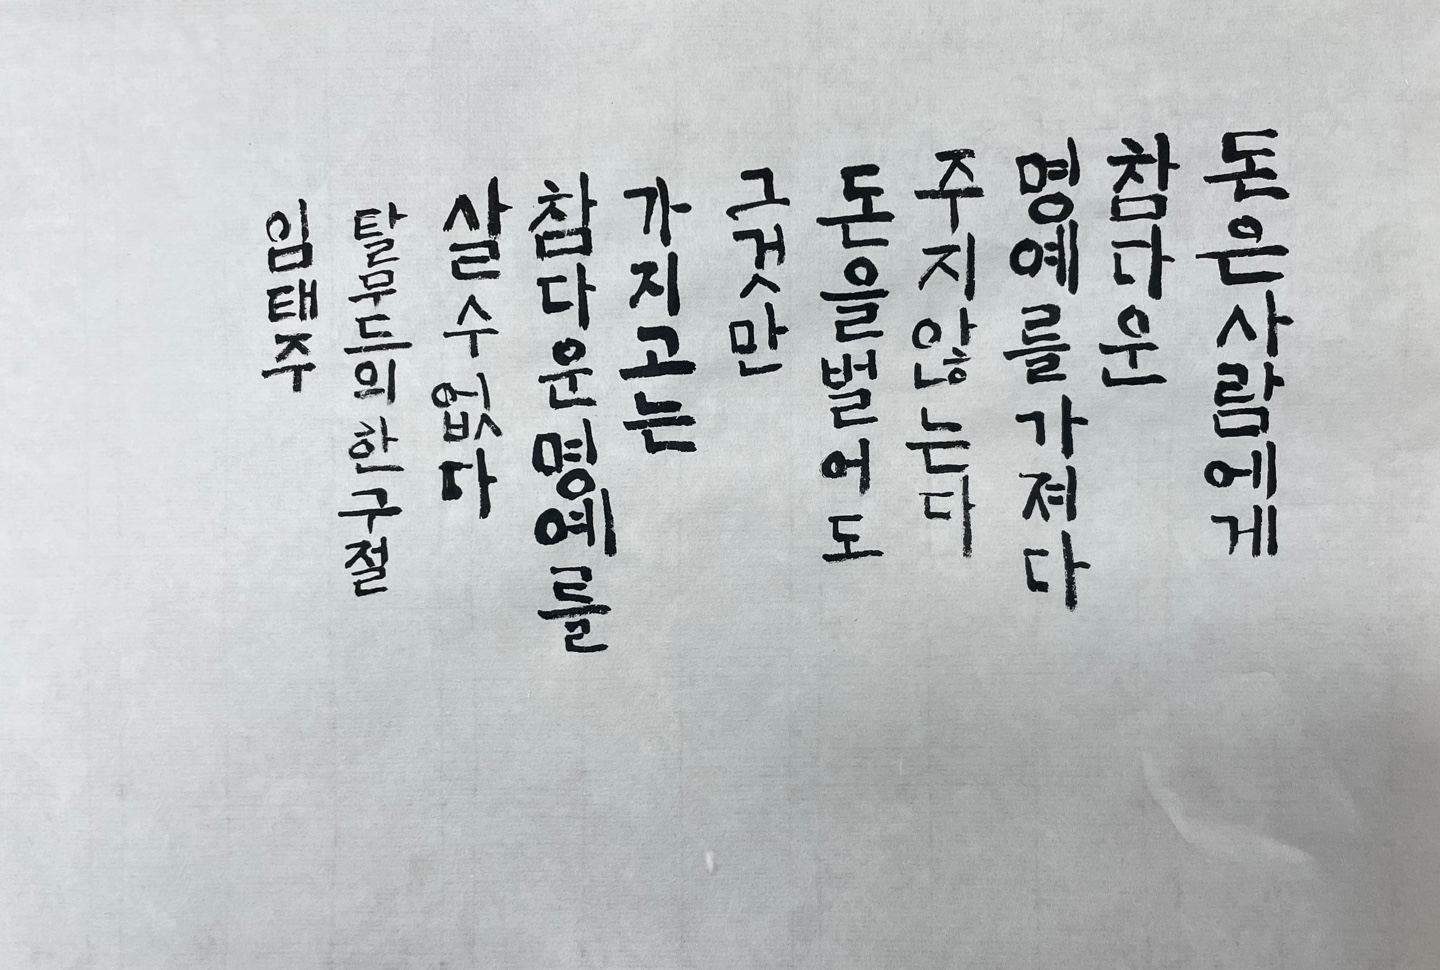 돈은사람에게
참다운
명예를가져다
주지않는다
돈을벌어도
그것만
가지고는
참다운명예를
살수없다
탈무드의한구절
임태주